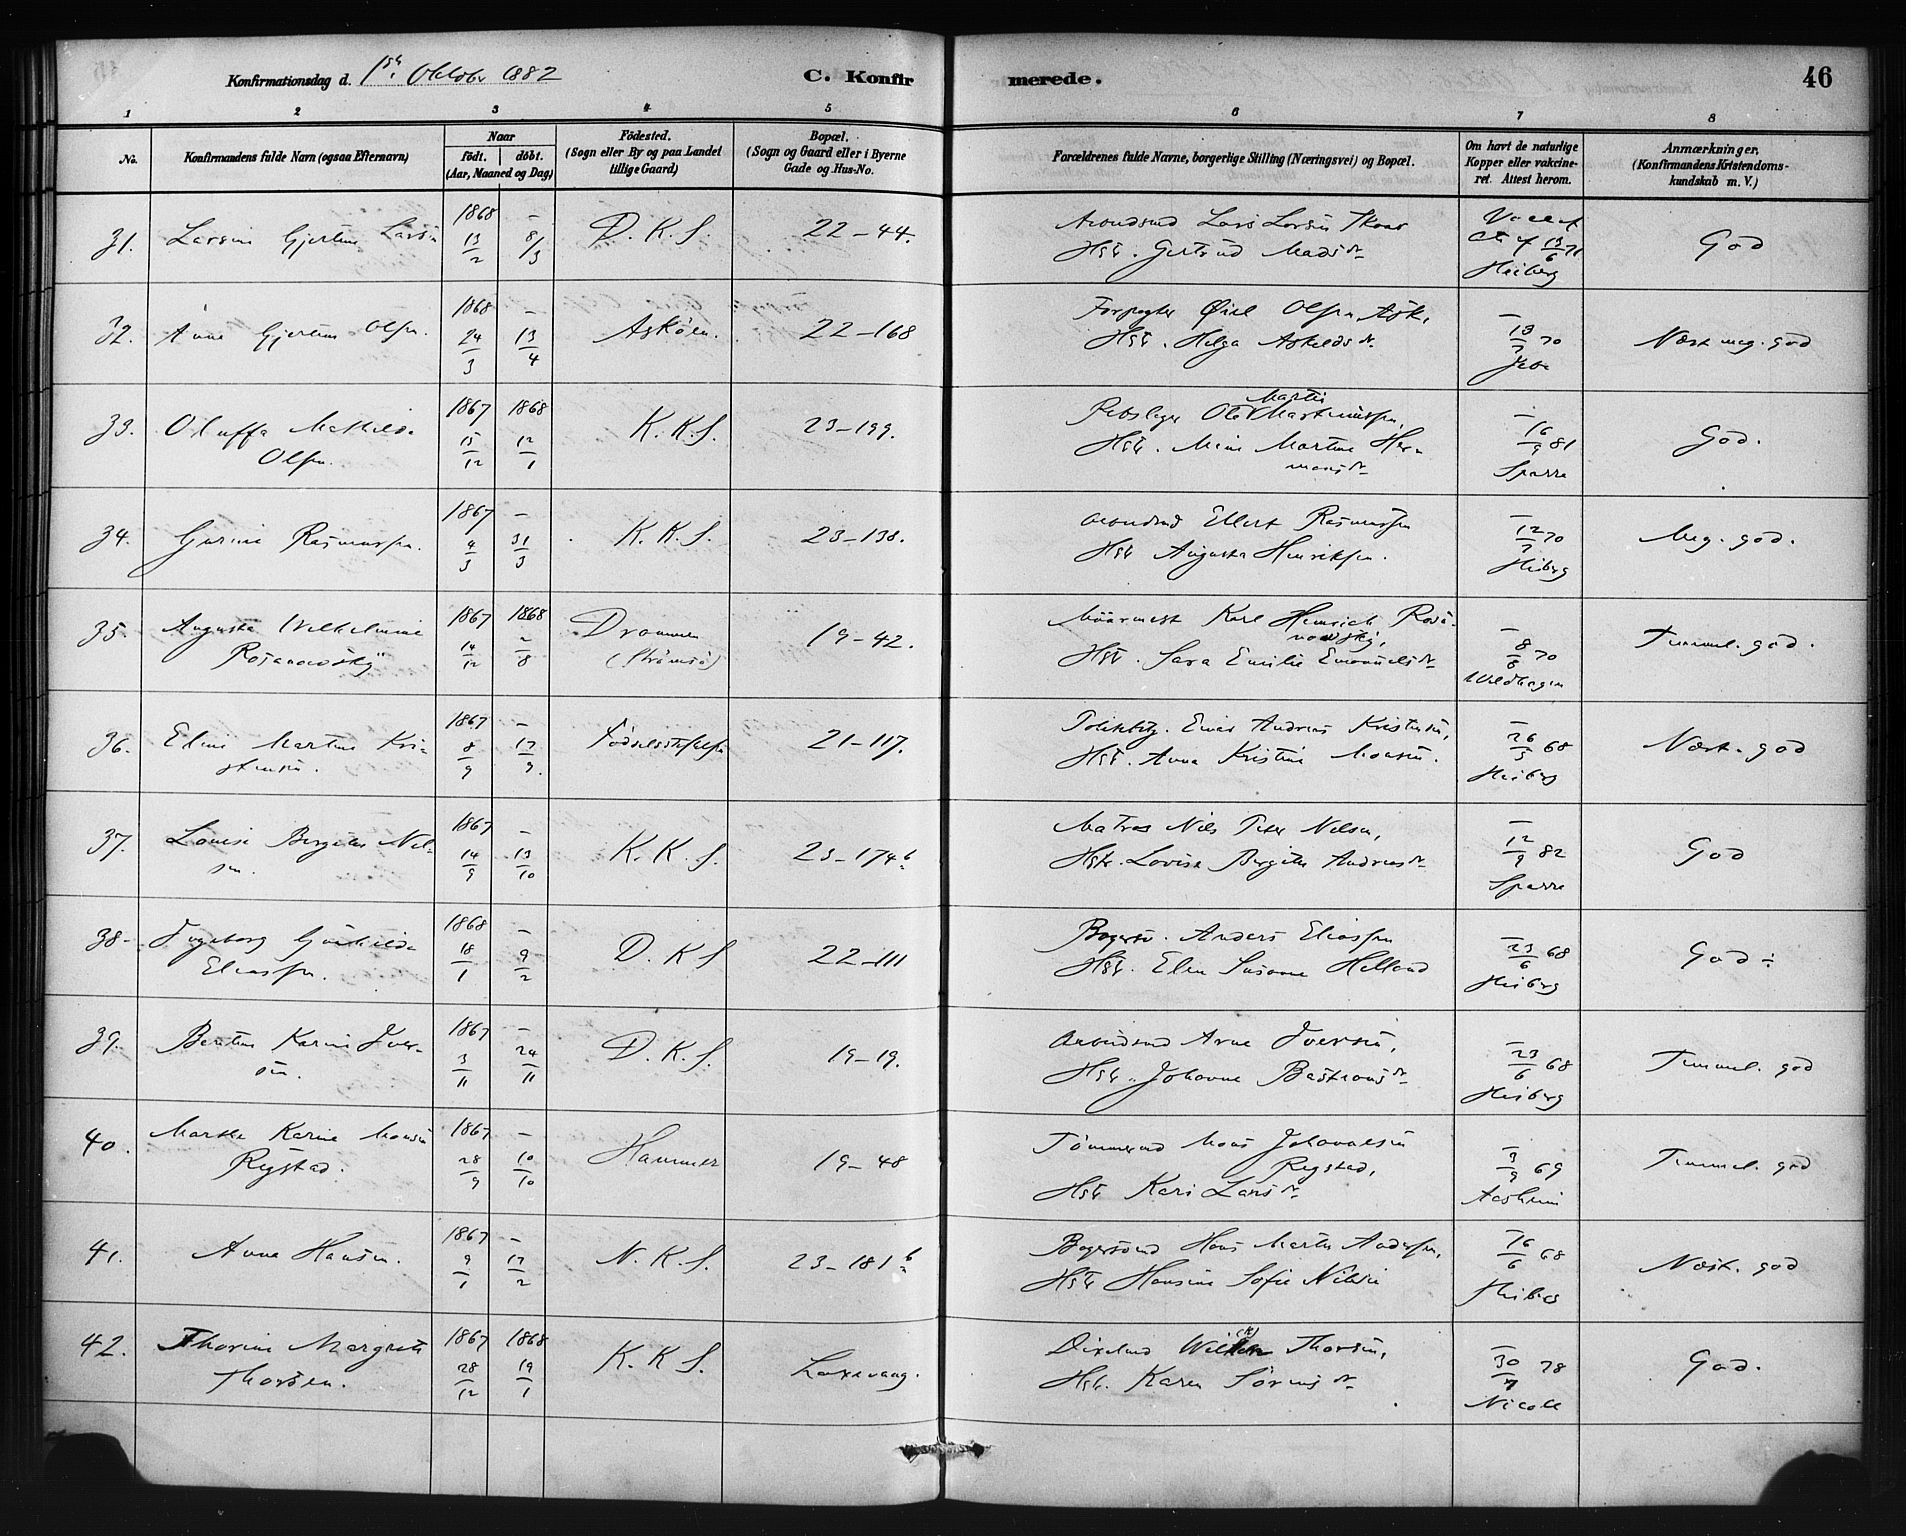 Konfirmationsdag d. 1ste Oktober 1882
C. Konfir
merede.
46
1 2 3 4 5 6 7 8
No.
Konfirmandens fulde Navn (ogsaa Efternavn)
Naar
födt. döbt.
(Aar, Maaned og Dag)
Födested.
(Sogn eller By og paa Landet
tillige Gaard)
Bopæl.
(Sogn og Gaard eller i Byerne
Gade og Hus-No.
Forældrenes fulde Navne, borgerlige Stilling (Næringsvei) og Bopæl.
Om havt de naturlige
Kopper eller vakcine-
ret. Attest herom.
Anmærkninger,
(Konfirmandens Kristendoms-
kundskab m. V.)
31. Larsine Gjertine Larsen
1868 13/2
- 8/3
D. K. S.
22-44.
Lars Larsen
Hstr. Gertrud Madsdr
13/6 71
Heiberg
God
32. Anne Gjertine Olsen.
1868 24/3
- 13/4
Askøen.
22-168
Forpagter Olsen, Ask,
Hstr. Helga Askeldsdr
- 13/7 70
God
33. Oluffa Mathilde
Olsen.
1867 15/12
1868 12/1
K. K. S.
23-199.
Rebslager Ole Martin
Hstr. Martine Her-
mansdr
- 16/9 81
Sparre
God.
34. Gurine Rasmussen.
1867 4/3
- 31/3
K. K. S.
23-138.
Ellert Rasmussen
Hstr Augusta Henriksen.
- 12/7 70
Heiberg
Meg. god.
35. Augusta Wilhelmine
Rosanowsky
1867 14/12
1868 2/8
Drammen
(Strømsø)
19-42.
Karl Heinrich Rosa-
nowsky,
Hstr. Sara Emilie Emanuelsdr
- 8/6 70
Wildhagen
Temmel. god.
36. Eline Martine Kri-
stensen.
1867 8/9
- 17/9.
Fødselsstiftelsen
21-117.
Politibtj. Andreas Kristensen,
Hstr. Anna Kristine Monsen.
- 26/5 68
Heiberg
Næst. god
37. Lovise Bergitte Niel-
sen.
1867 14/9
- 13/10
K. K. S.
23-174 b
Matros Nils Peter Nilsen,
Hstr. Lovise Bergitte Andreasdr
- 12/9 82
Sparre
God
38. Ingeborg Gunhilda
Eliassen.
1868 18/1
- 9/2
D. K. S
22-111
Anders Eliassen
Hstr. Elen Susanne Helland
- 23/6 68
Heiberg
God ÷
39. Bertine Karine Iver-
sen.
1867 3/11
- 24/11
D. K. S.
19-19.
Arne Iversen,
Hstr. Johanne Bastiansdr
- 23/6 68
Heiberg
Temmel. god
40. Marthe Karine Monsen
Rystad.
1867 28/9
- 10/10
Hammer
19-48
Tømmermd Mons Johannesen
Rystad,
Hstr Kari Larsdr
3/9 69
Temmel. god
41. Anna Hansen.
1867 9/1
- 17/2
N. K. S.
23-181 b
Hans Martin Andersen,
Hstr Hansine Sofie Nilsen
16/6 68
Heiberg
Næst. god
42. Thorine Margrete
Thorsen.
1867 28/12
1868 19/1
K. K. S.
Laxevaag.
Dixelmd Thorsen,
Hstr. Karen Sørensdr
- 30/7 78
God.